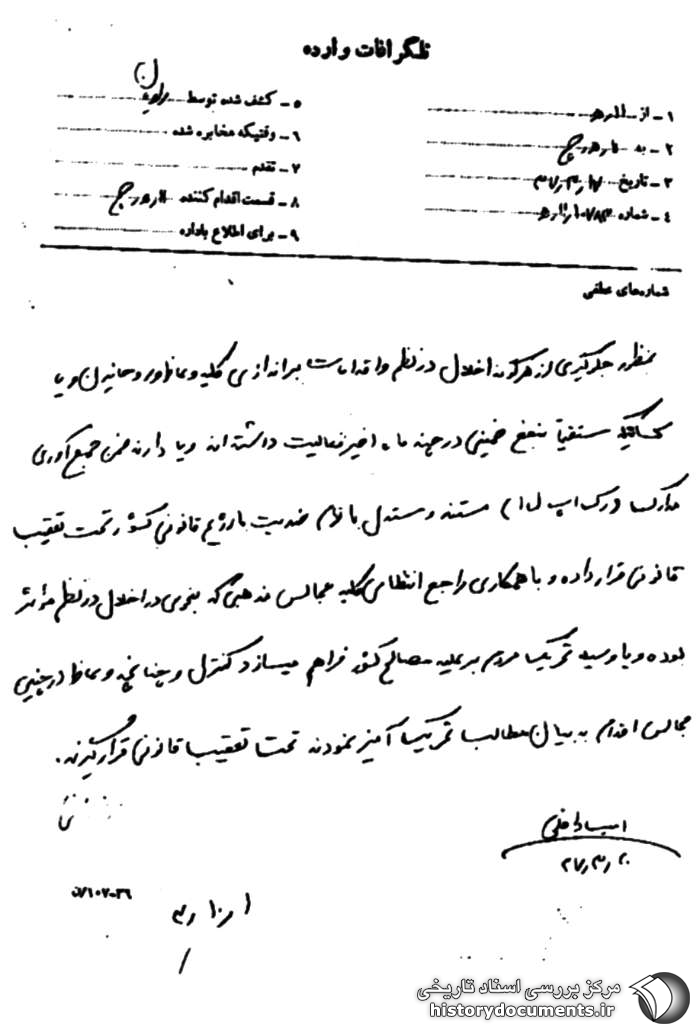 تلگرافات وارده
۱ - از
۲ - به
۳ - تاریخ
۴ - شماره
۵ - کشف شده توسط
۶ - وقتیکه مخابره شده
۷ - تقدم
۸ - قسمت اقدام کننده
۹ - برای اطلاع باداره
شماره‌های عطفی
بمنظور جلوگیری از هرگونه اخلال در نظم و اقدامات براندازی کلیه وعاظ و روحانیون و یا
کسانیکه مستقیماً بنفع خمینی در چند ماه اخیر فعالیت داشته‌اند و یا دارند ضمن جمع‌آوری
مدارک مستند و مستدل باتهام ضدیت با رژیم قانونی کشور تحت تعقیب
قانونی قرار داده و با همکاری مراجع انتظامی کلیه مجالس مذهبی که بنحوی در اخلال در نظم مؤثر
بوده و یا وسیله تحریک مردم بر علیه مصالح کشور فراهم میسازد کنترل و چنانچه وعاظ در چنین
مجالس اقدام به بیان مطالب تحریک آمیز نمودند تحت تعقیب قانونی قرار گیرند.
مرکز بررسی اسناد تاریخی
historydocuments.ir